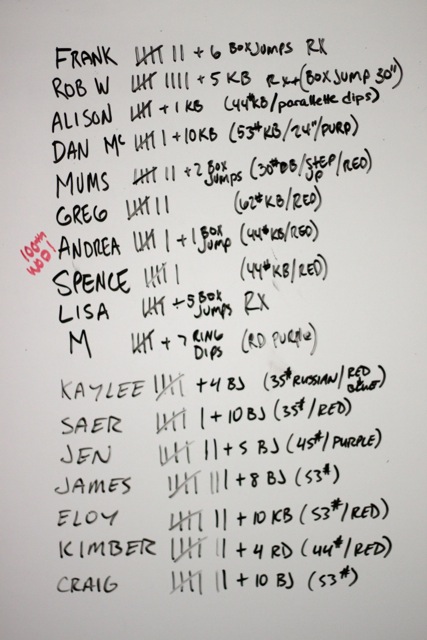 FRANK 卌 II + 6 BOX JUMPS RX
ROB W 卌 IIII + 5 KB RX+(BOX JUMP 30")
ALISON 卌 + 1 KB (44# KB/parallette dips)
DAN Mc 卌 I + 10 KB (53# KB/24"/PURP)
MUMS 卌 II + 2 BOX JUMPS (30# DB/STEP UP/RED)
GREG 卌 II (62# KB/RED)
100th WOD! ANDREA 卌 I + 1 BOX JUMP (44# KB/RED)
SPENCE 卌 I (44# KB/RED)
LISA 卌 + 5 BOX JUMPS RX
M 卌 + 7 RING DIPS (RD PURPLE)
KAYLEE 卌 + 4 BJ (35# RUSSIAN/RED
SAER 卌 I + 10 BJ (35#/RED)
JEN 卌 II + 5 BJ (45#/PURPLE)
JAMES 卌 III + 8 BJ (53#)
ELOY 卌 II + 10 KB (53#/RED)
KIMBER 卌 II + 4 RD (44#/RED)
CRAIG 卌 II + 10 BJ (53#)